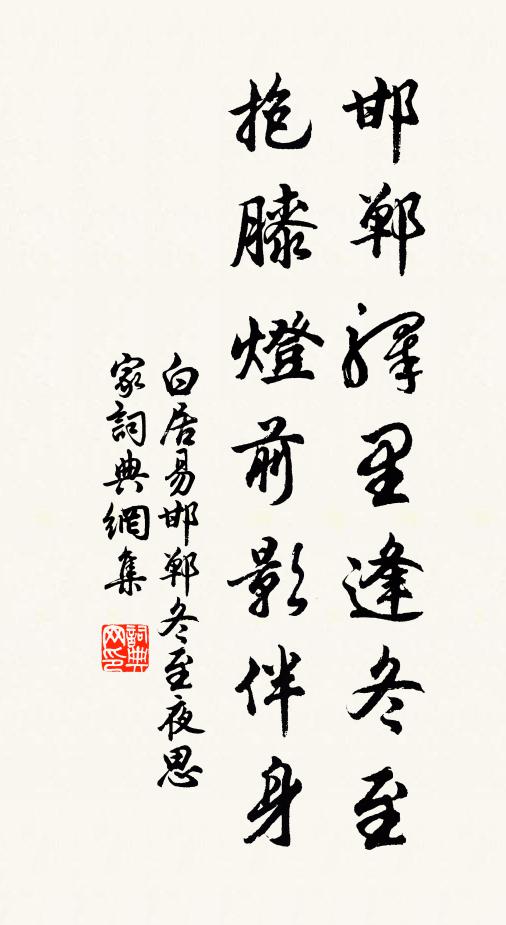 邯鄲驛里逢冬至
抱膝燈前影伴身
白居易邯鄲冬至夜思
家詞典網集
詞典
网印